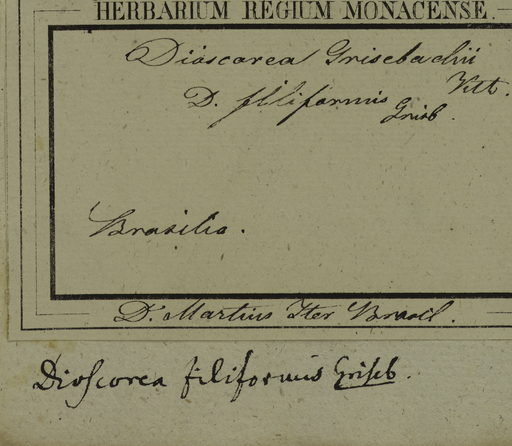 HERBARIUM REGIUM MONACENSE.
Dioscorea Grisebachii
Kth.
D. filiformis Griseb.
Brasilia.
Dr. Martius Iter Brasil.
Dioscorea filiformis Griseb.